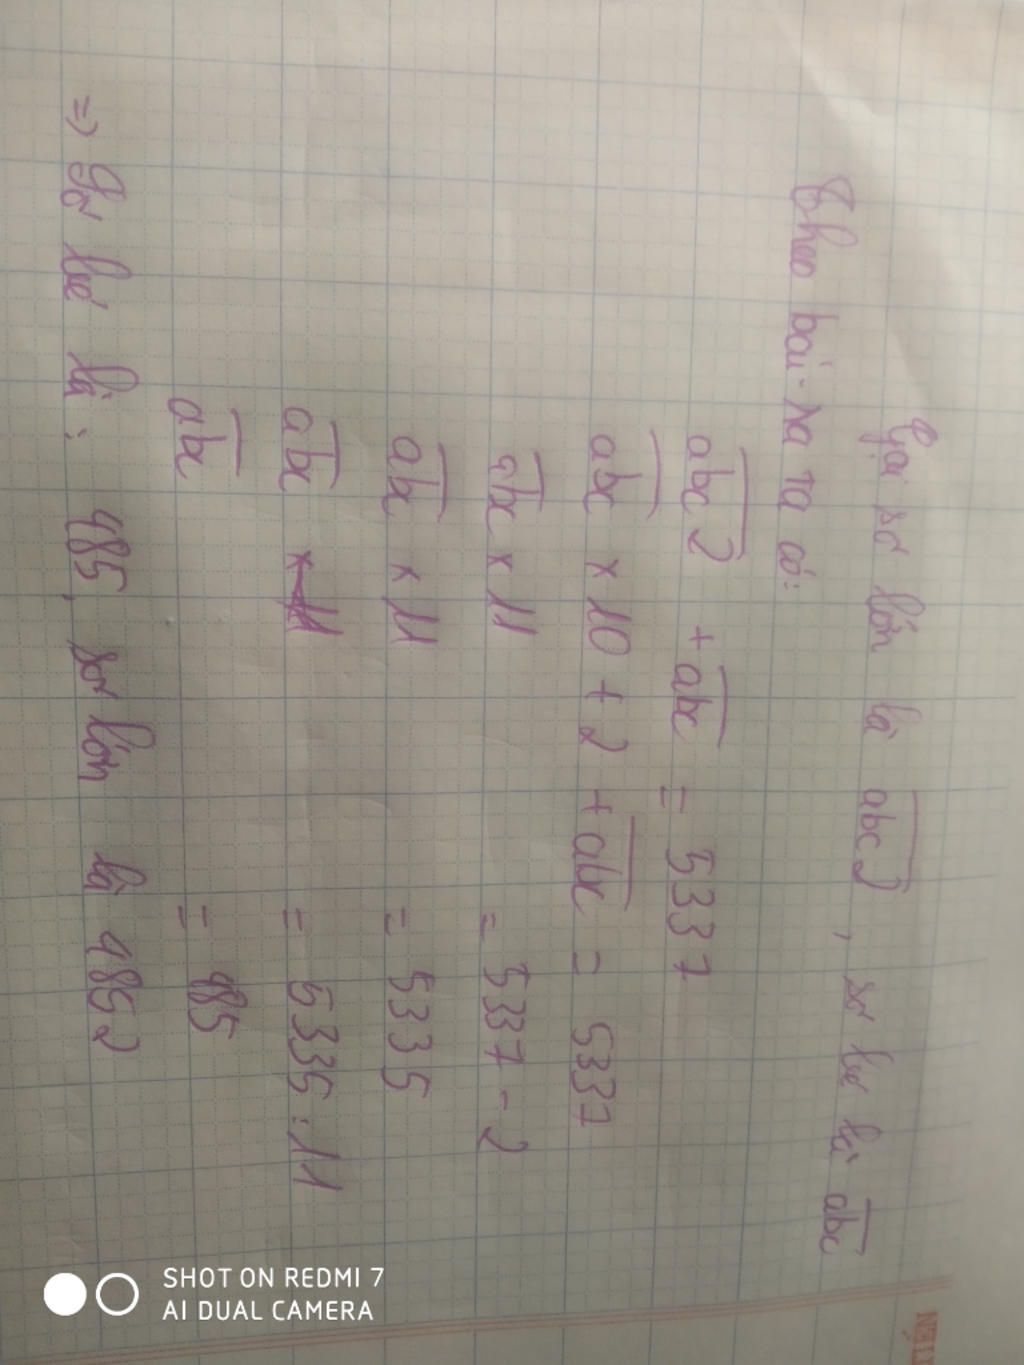 Gọi số lớn là abc2, số bé là abc
Theo bài ra ta có:
abc2 + abc = 5337
abc x 10 + 2 + abc = 5337
abc x 11 = 5337 - 2
abc x 11 = 5335
abc x 11 = 5335 : 11
abc = 485
=> Số bé là : 485, số lớn là 4852
SHOT ON REDMI 7
AI DUAL CAMERA